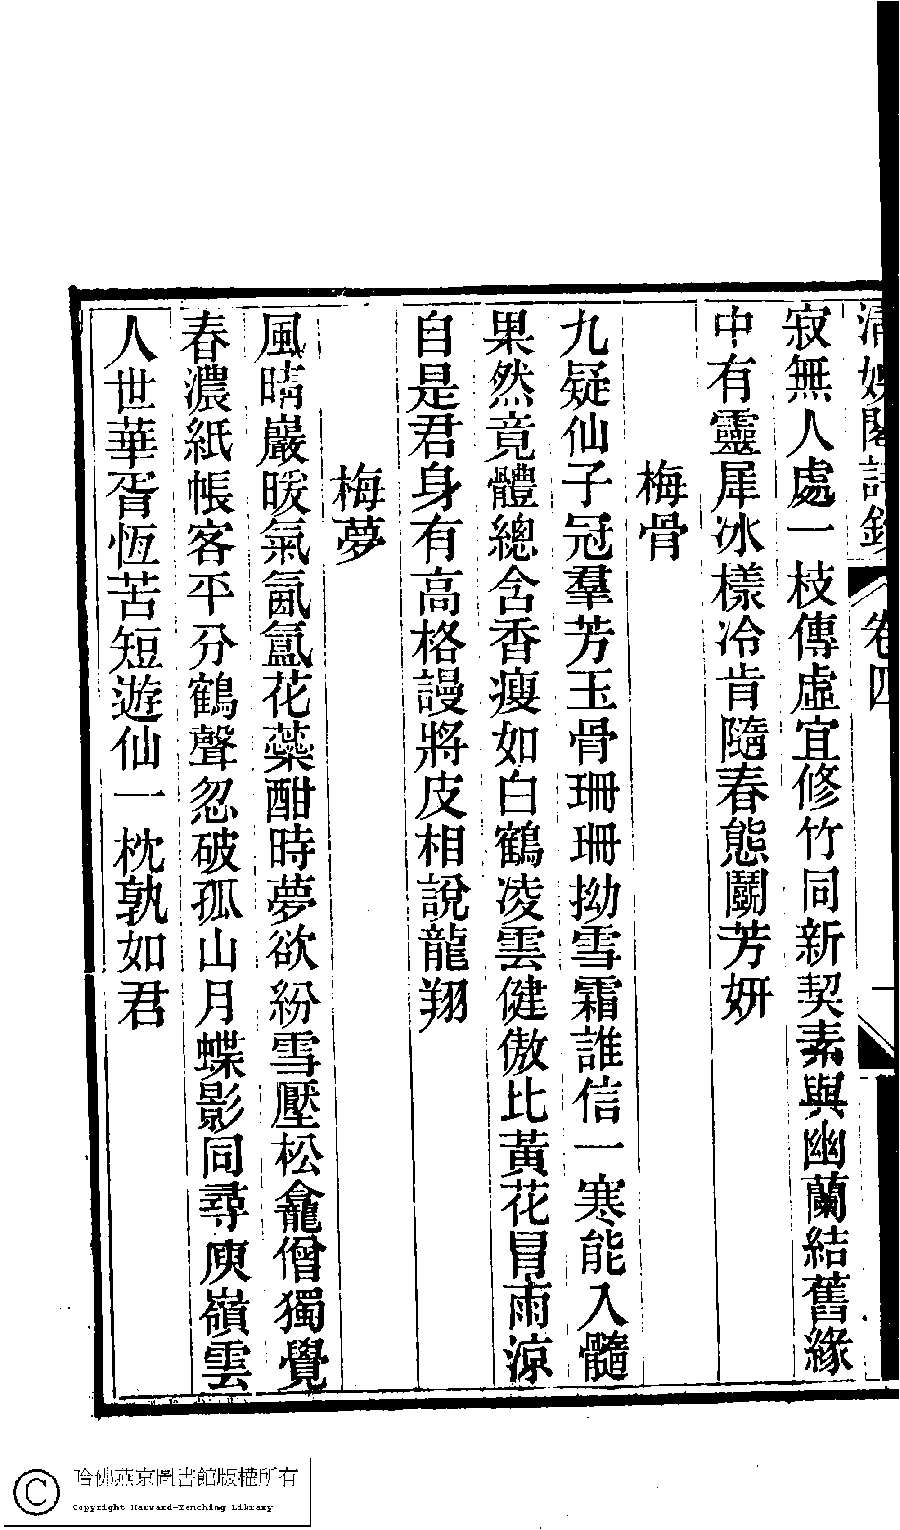 清娛閣詩鈔 卷四 二
寂無人處一枝傳虛宜修竹同新契素與幽蘭結舊緣
中有靈犀冰樣冷肯隨春態鬬芳妍
梅骨
九疑仙子冠羣芳玉骨珊珊拗雪霜誰信一寒能入髓
果然竟體總含香瘦如白鶴凌雲健傲比黃花冒雨涼
自是君身有高格謾將皮相說龍翔
梅夢
風晴巖暖氣氤氳花蘂酣時夢欲紛雪壓松龕僧獨覺
春濃紙帳客平分鶴聲忽破孤山月蝶影同尋庾嶺雲
人世華胥恆苦短遊仙一枕孰如君
哈佛燕京圖書館版權所有
Copyright Harvard-Yenching Library